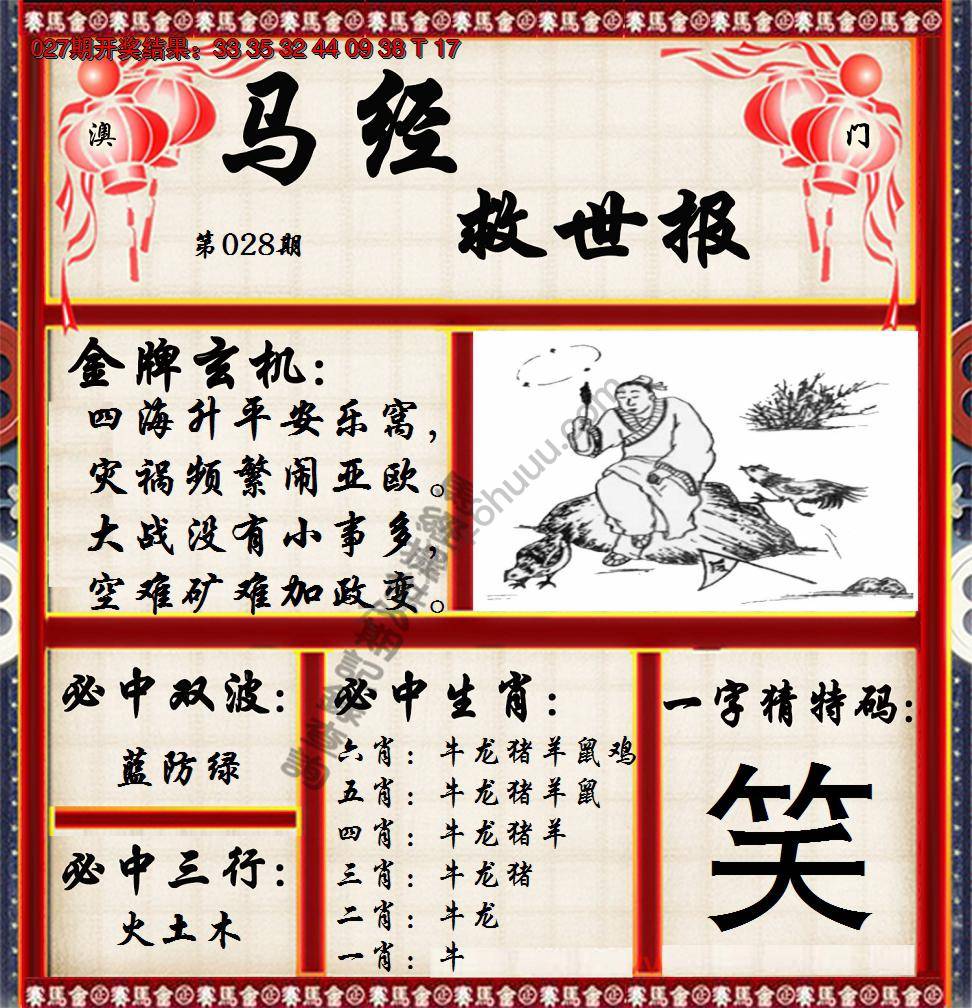 027期开奖结果：33 35 32 44 09 38 T 17
澳
门
马经
救世报
第028期
金牌玄机：
四海升平安乐窝，
灾祸频繁闹亚欧。
大战没有小事多，
空难矿难加政变。
必中双波：
蓝防绿
必中三行：
火土木
必中生肖：
六肖：牛龙猪羊鼠鸡
五肖：牛龙猪羊鼠
四肖：牛龙猪羊
三肖：牛龙猪
二肖：牛龙
一肖：牛
一字猜特码：
笑